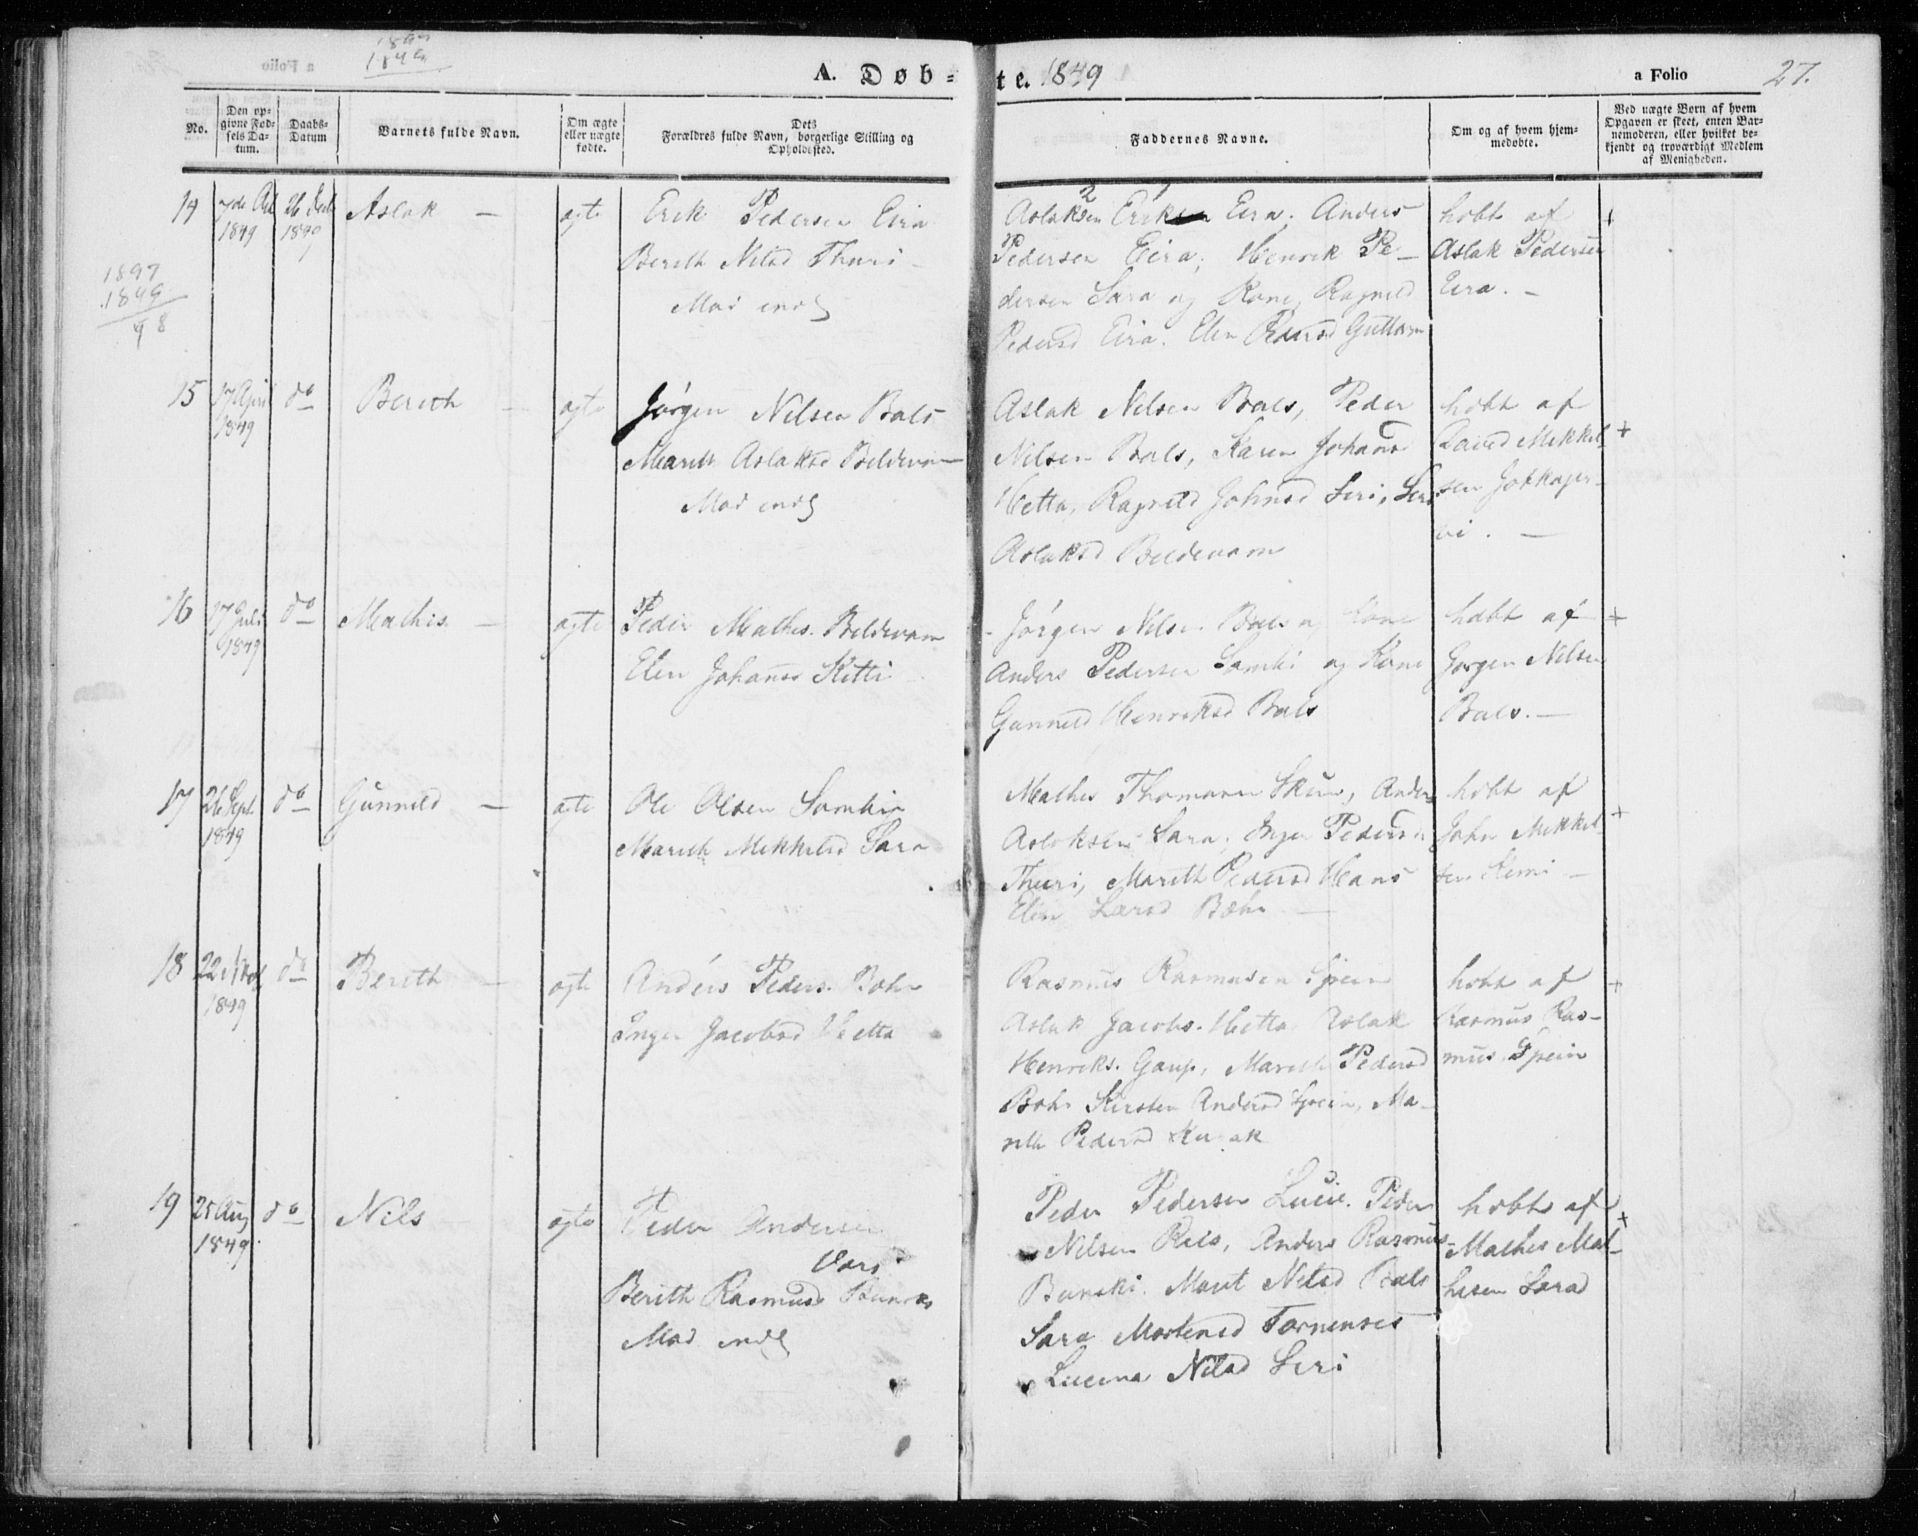 1849
A. Døb-
te. 1849
a Folio 27.
No.
Den op-
givne Fød-
sels Da-
tum.
Daabs-
Datum
Barnets fulde Navn.
Om ægte
eller uægte
fødte.
Dets
Forældres fulde Navn, borgerlige Stilling og
Opholdssted.
Faddernes Navne.
Om og af hvem hjem-
medøbte.
Ved uægte Børn af hvem
Opgaven er skeet, enten Bar-
nemoderen, eller hvilket be-
kjendt og troværdigt Medlem
af Menigheden.
1897
1849
48
14
1849
26
Aslak —
ægte
Erik Pedersen Eira
Berith Nilsd Thuri
Mad indg
2 1
Aslaksen Erik Eira. Anders
Pedersen Eira, Henrik Pe-
dersen Sara og Kone, Ragnild
Pedersd Eira. Elen Pedersd Guttorm
hobt af
Aslak Pedersen
Eira. —
+
15
17 April
1849
do
Berith —
ægte
Jørgen Nilsen Bals
Marith Aslaksd Beldevam
Mad indg
Aslak Nilsen Bals, Peder
Nilsen Bals, Karen Johansd
Hetta, Ragnild Johnsd Siri, Siri
Aslaksd Beldevam
hobt af
David Mikkel-
sen Jokkajer-
vi. —
+
16
17 Juli
1849
do
Mathis —
ægte
Peder Mathis. Beldevam
Elen Johansd Kitti
Jørgen Nils. Bals og Kone
Anders Pedersen Sombi og Kone
Gunnild Henriksd Bals
hobt af
Jørgen Nilsen
Bals. —
+
17
26 Sept
1849
do
Gunnild —
ægte
Ole Olsen Somby
Marith Mikkelsd Sara
Mathis Thomasen Skum, Anders
Aslaksen Sara, Inger Pedersd
Thuri, Marith Pedersd Hans
Elen Larsd Bæhr —
hobt af
John Mikkel-
sen Kemi —
+
18
22
1849
do
Berith —
ægte
Anders Peders. Bohr
Inger Jacobsd Hetta
Rasmus Rasmusen Spein
Aslak Jacobs. Hetta, Aslak
Henriks. Gaup, Marith Pedersd
Bohr Kirsten Andersd Spein, Ma-
rith Pedersd
hobt af
Rasmus Ras-
mus. Spein
+
19
25 Aug
1849
do
Nils
ægte
Peder Andersen
Vars
Berith Rasmusd
Mad indg
Peder Pedersen Lucie. Peder
Nilsen Bals, Anders Rasmus-
Bunski. Marit Nilsd Bals
Sara Mortensd Tornensis
Lucina Nilsd Siri
hobt af
Mathis Mat-
hisen Sarad
+